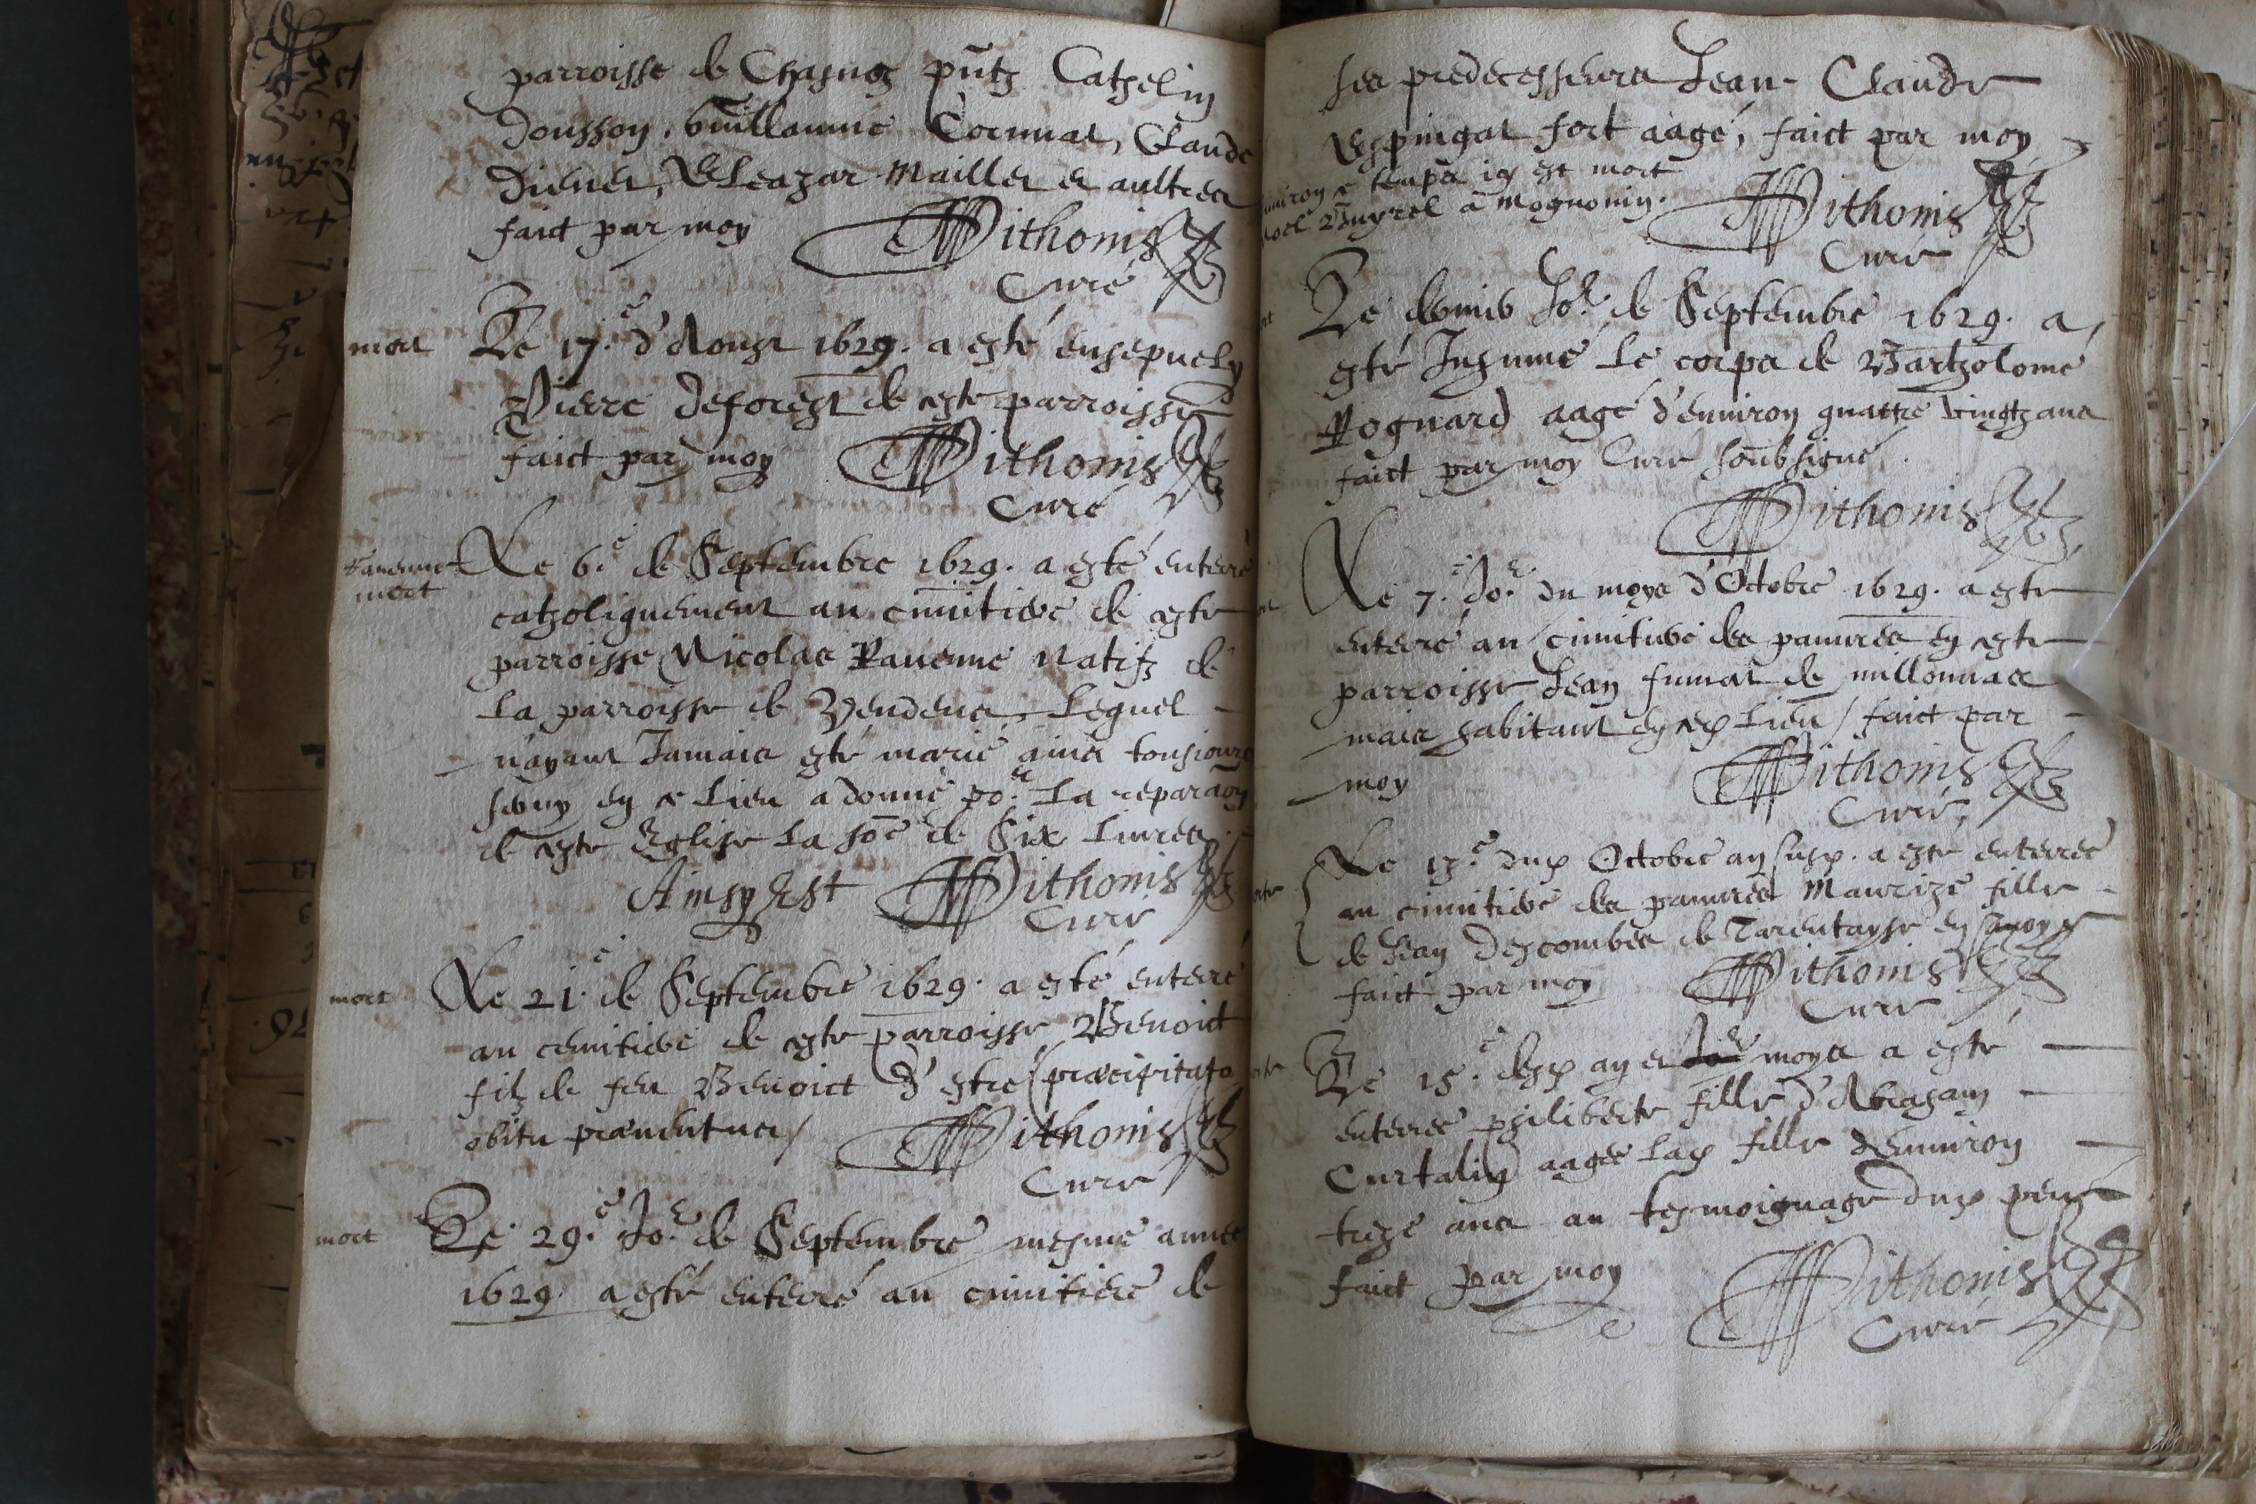 parroisse de Chasnoz pñtz Cathelin
Dousson, Guillaume Cornuat, Claude
Diener, Eleazar Maillet et aultres
faict par moy Pithonis
Curé
mort Le 17.e d'Aoust 1629. a esté ensepuely
Pierre Deforest de ceste parroisse
faict par moy Pithonis
Curé
Rauenne mort
Le 6.e de Septembre 1629. a esté enterré
catholiquement au cimitiere de ceste
parroisse Nicolas Rauenne natifz de
la parroisse de Vendenes, Lequel
n'ayant Jamais esté marié ains tousiours
seruy en ce lieu a donné po.r la reparaõn
de ceste Eglise la sõe de Six Liures.
Ainsy Est Pithonis
Curé
mort Le 21.e de Septembre 1629. a esté enterré
au cemitiere de ceste parroisse Benoict
filz de feu Benoict d'estre (præcipitato
obitu præuentus/ Pithonis
Curé
mort Le 29.e Jo.r de Septembre mesme année
1629. a esté enterré au cimitiere de
ses predecesseurs Jean Claude
Espingat fort aagé, faict par moy
enuiron ce temps icy est mort
à Mognonin. Pithonis
Curé
Le dernier Jo.r de Septembre 1629. a
esté Inhumé le corps de Barthelomé
Rognard aagé d'enuiron quattre vingtz ans
faict par moy Curé soubsigné.
Pithonis
Le 7.e Jo.r du moys d'Octobre 1629. a este
enterré au cimitiere des pauures en ceste
parroisse Jean fumat de millonnas
mais habitant en ce lieu / faict par
moy Pithonis
Curé,
Le 13.e dud Octobre an susd. a esté enterrée
au cimitiere des pauures Maurize fille
de Jean Descombes de Tarentayse en Sauoye
faict par moy Pithonis
Curé
Le 15.e desd an et moys a esté
enterrée philiberte fille d'Abraham
Curtalin aagée lad fille d'enuiron
treze ans au tesmoignage dud pere
faict par moy Pithonis
Curé